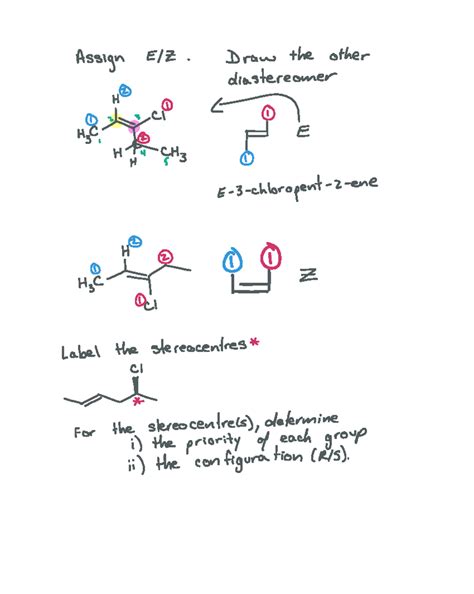 Assign E/Z. Draw the other
diastereomer
② H ① Cl
① H₃C 1 2 3
② H H 4 CH₃ 5
① ① E
E-3-chloropent-2-ene
② H ②
① H₃C ① Cl
① ① Z
Label the stereocentres *
Cl
*
For the stereocentre(s), determine
i) the priority of each group
ii) the configuration (R/S).